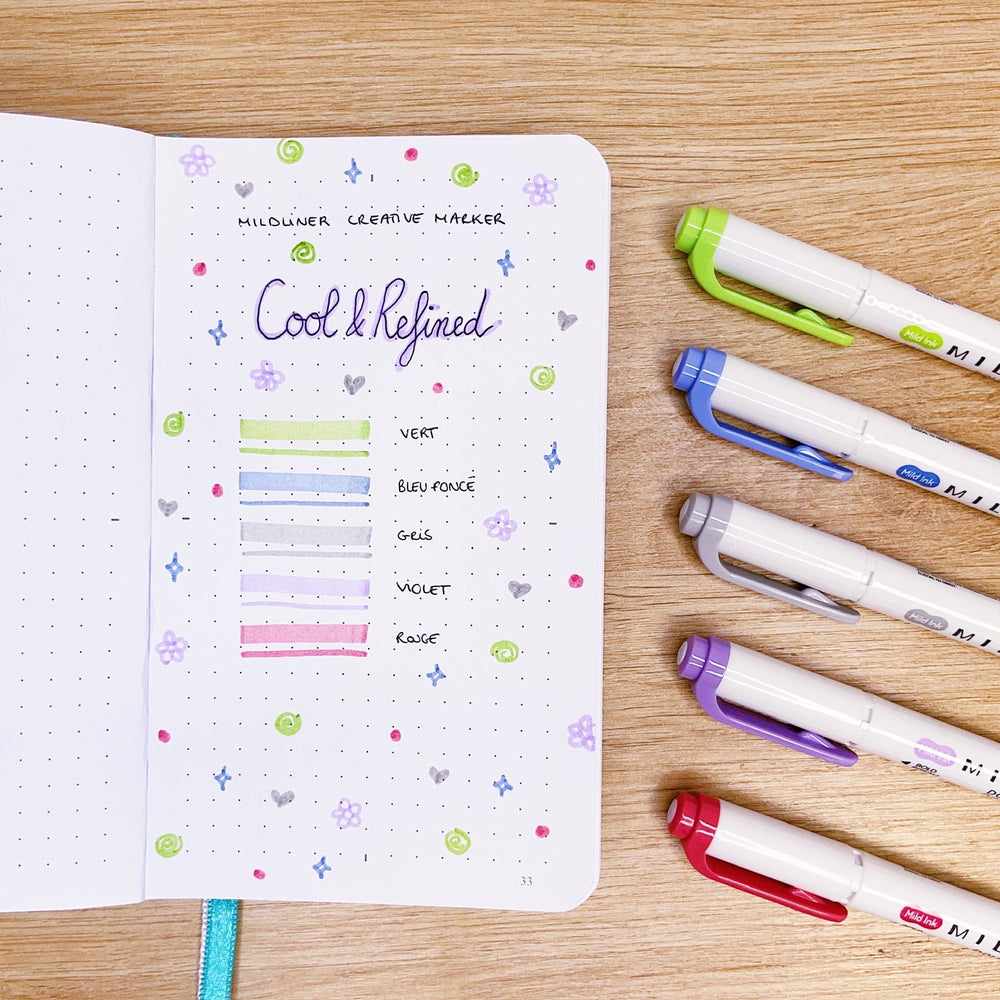 MILDLINER CREATIVE MARKER
Cool & Refined
VERT
BLEU FONCÉ
GRIS
VIOLET
ROUGE
33
Mild Ink
Mild Ink
Mild Ink
Mild Ink
BOLD
Mild Ink